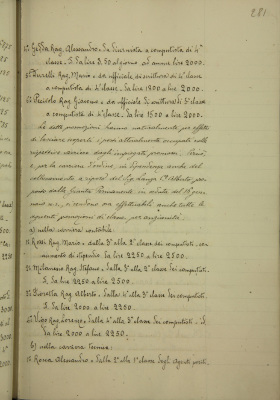 281.
Gedda Rag. Alessandro - Da Giornalista a computista di 4ª
classe - S. da lire 3.50 al giorno ad annue lire 2000.
Rag. Mario - da ufficiale di scrittura di 4ª classe
a computista di 4ª classe. Da lire 1800 a lire 2000.
Piccolo Rag. Giacomo - da ufficiale di scrittura di 5ª classe
a computista di 4ª classe - da lire 1500 a lire 2000.
Le dette promozioni hanno naturalmente per effetto
di lasciare aperti i posti attualmente occupati nelle
rispettive carriere dagli impiegati promossi.
e per la carriera d'ordine, in dipendenza anche del
collocamento a riposo del Sig. Longo Cav. Alberto, pro-
posto dalla Giunta Permanente in seduta del 18 gen-
naio u.s., si rendono ora effettuabili anche tutte le
seguenti promozioni di classe, per anzianità:
a) nella carriera contabile:
Rossi Rag. Mario - dalla 3ª alla 2ª classe dei computisti, con
aumento di stipendio da lire 2250 a lire 2500.
Rag. Stefano - Dalla 3ª alla 2ª classe dei computisti.
S. da lire 2250 a lire 2500.
Rag. Alberto - Dalla 4ª alla 3ª classe dei computisti.
S. da lire 2000 a lire 2250.
Rag. Lorenzo - Dalla 4ª alla 3ª classe dei computisti - S.
da lire 2000 a lire 2250.
b) nella carriera tecnica:
Alessandro - Dalla 2ª alla 1ª classe degli Agenti